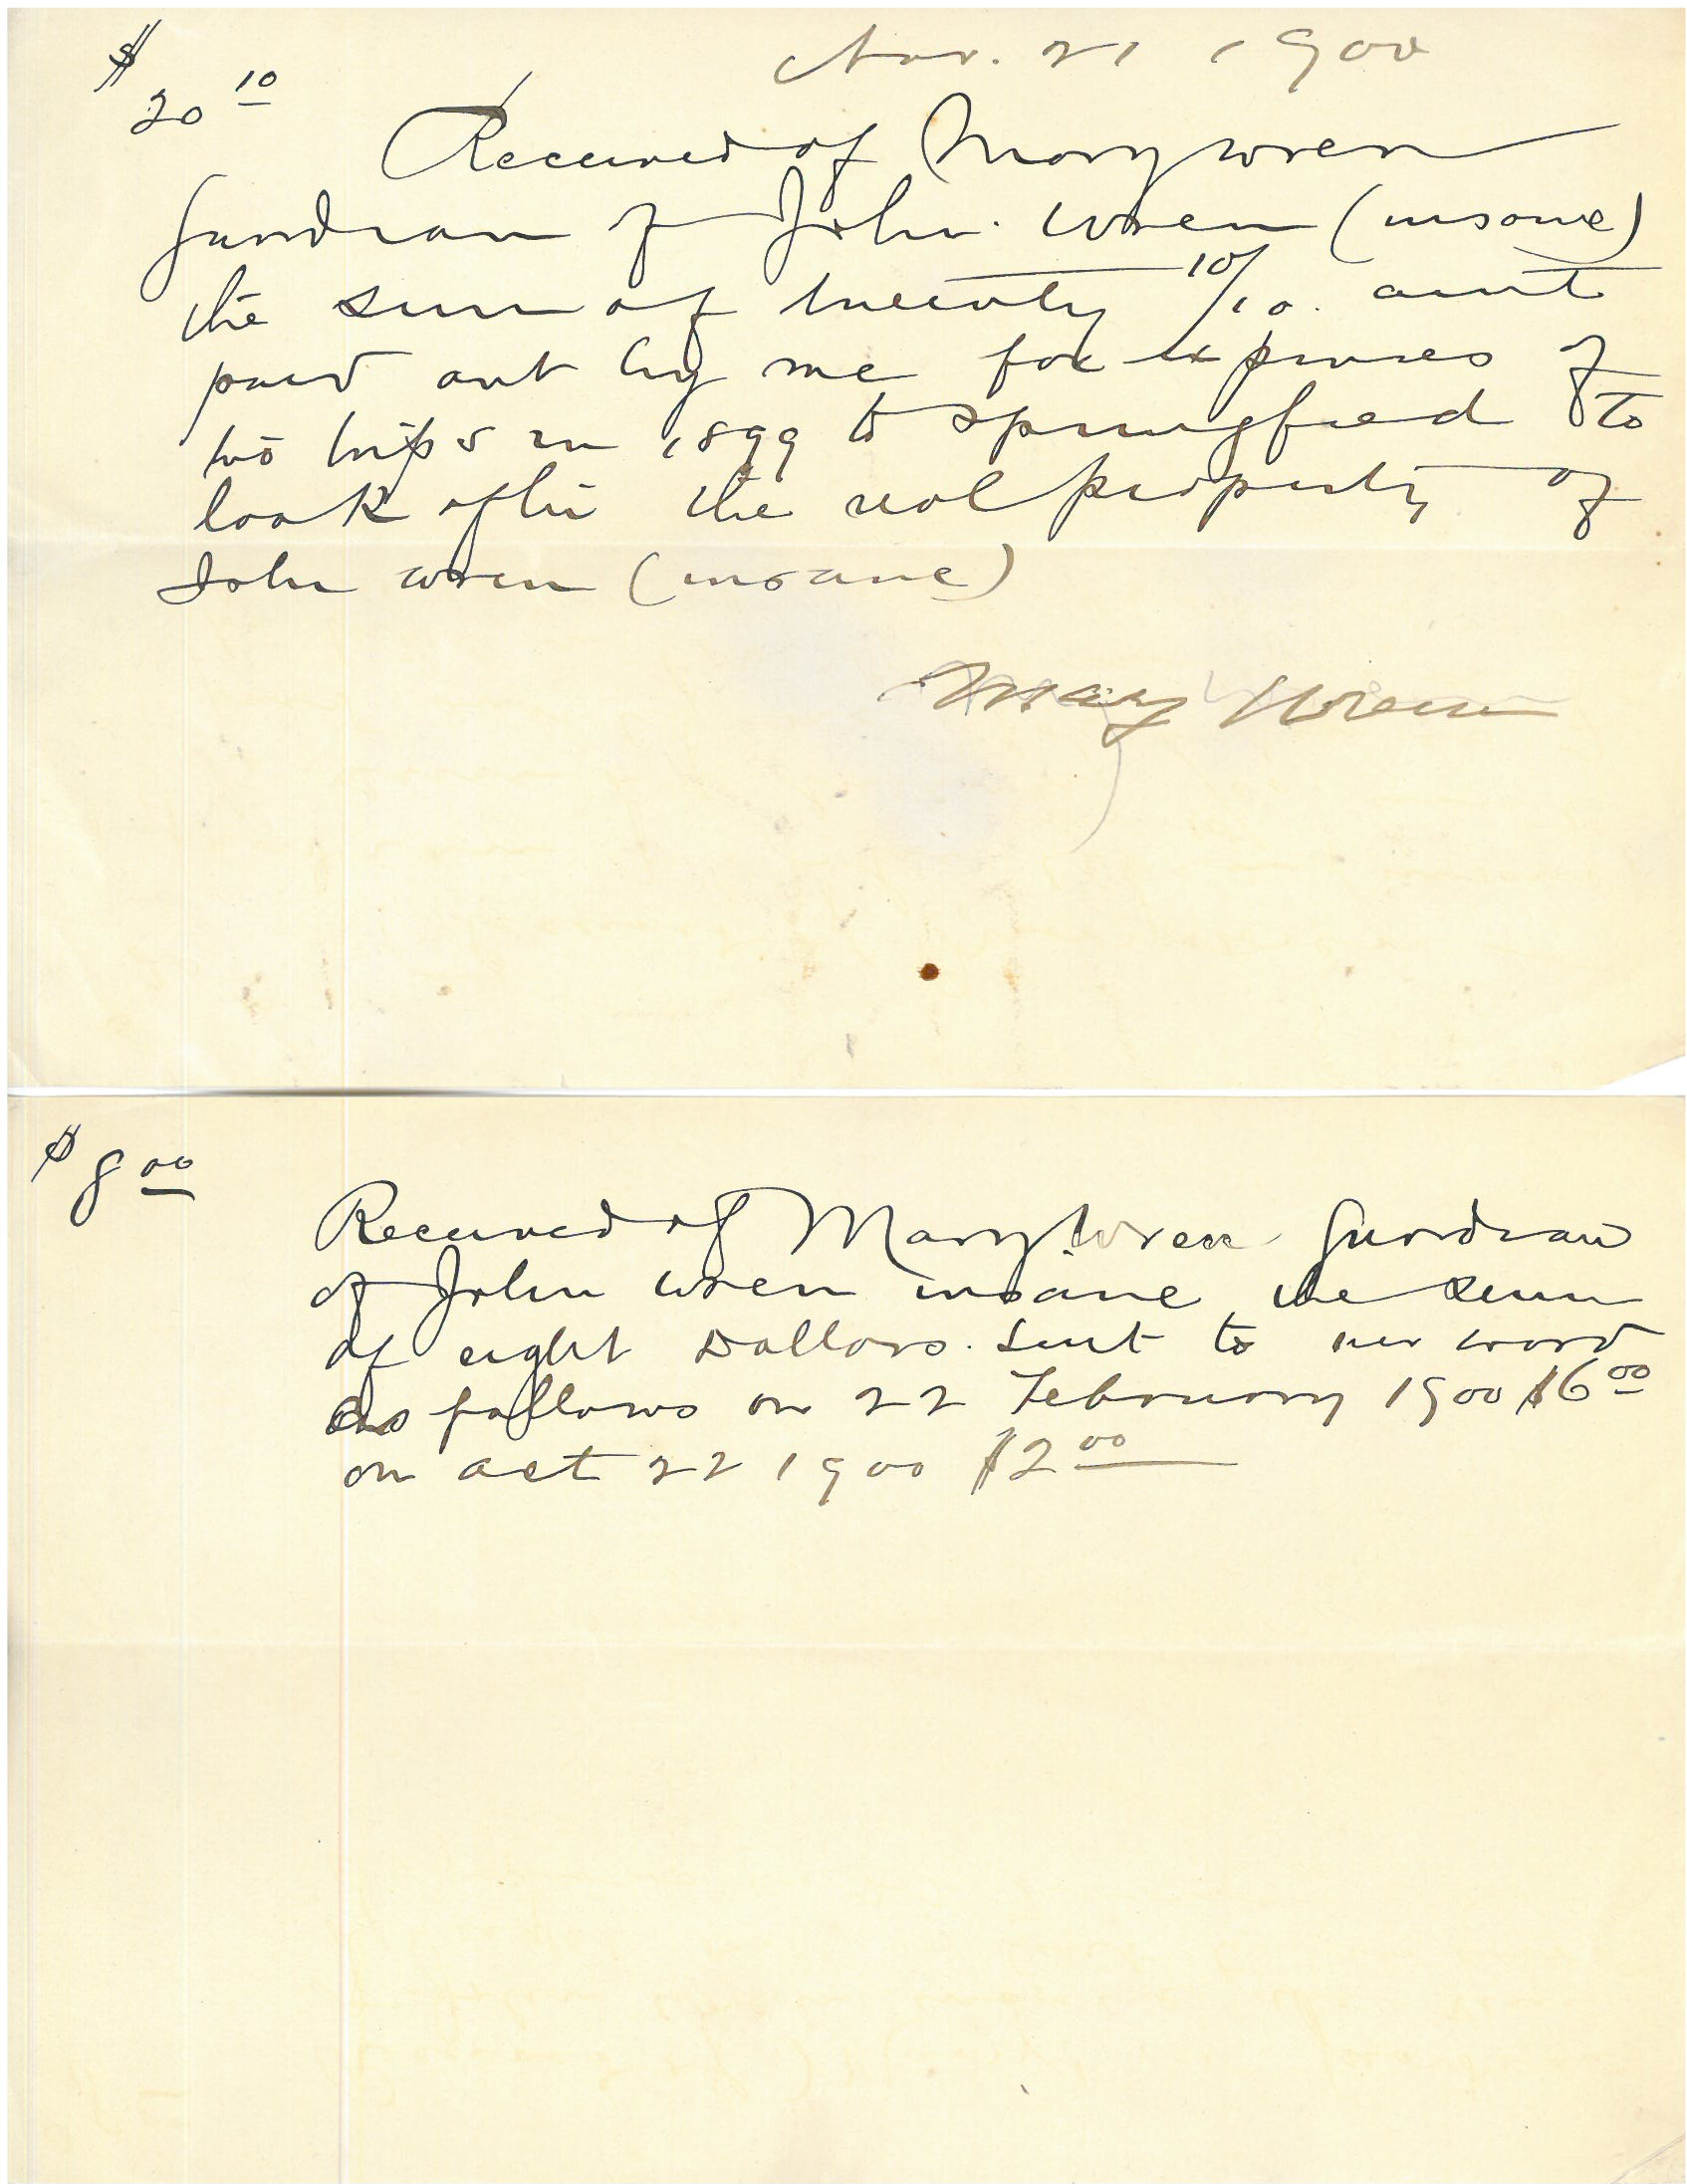 Nov. 21 1900
$20 10
Received of Mary Wren
Gurdian of John Wren (insane)
the sum of twenty 10/10. amt
paid out by me for expenses of
two trips in 1899 to Springfield to
look after the real property of
John Wren (insane)
Mary Wren
$8 00
Received of Mary Wren Gurdian
of John Wren insane the sum
of eight Dollars. Sent to her ward
as follows on 22 February 1900 $6 00
on Oct 22 1900 $2 00